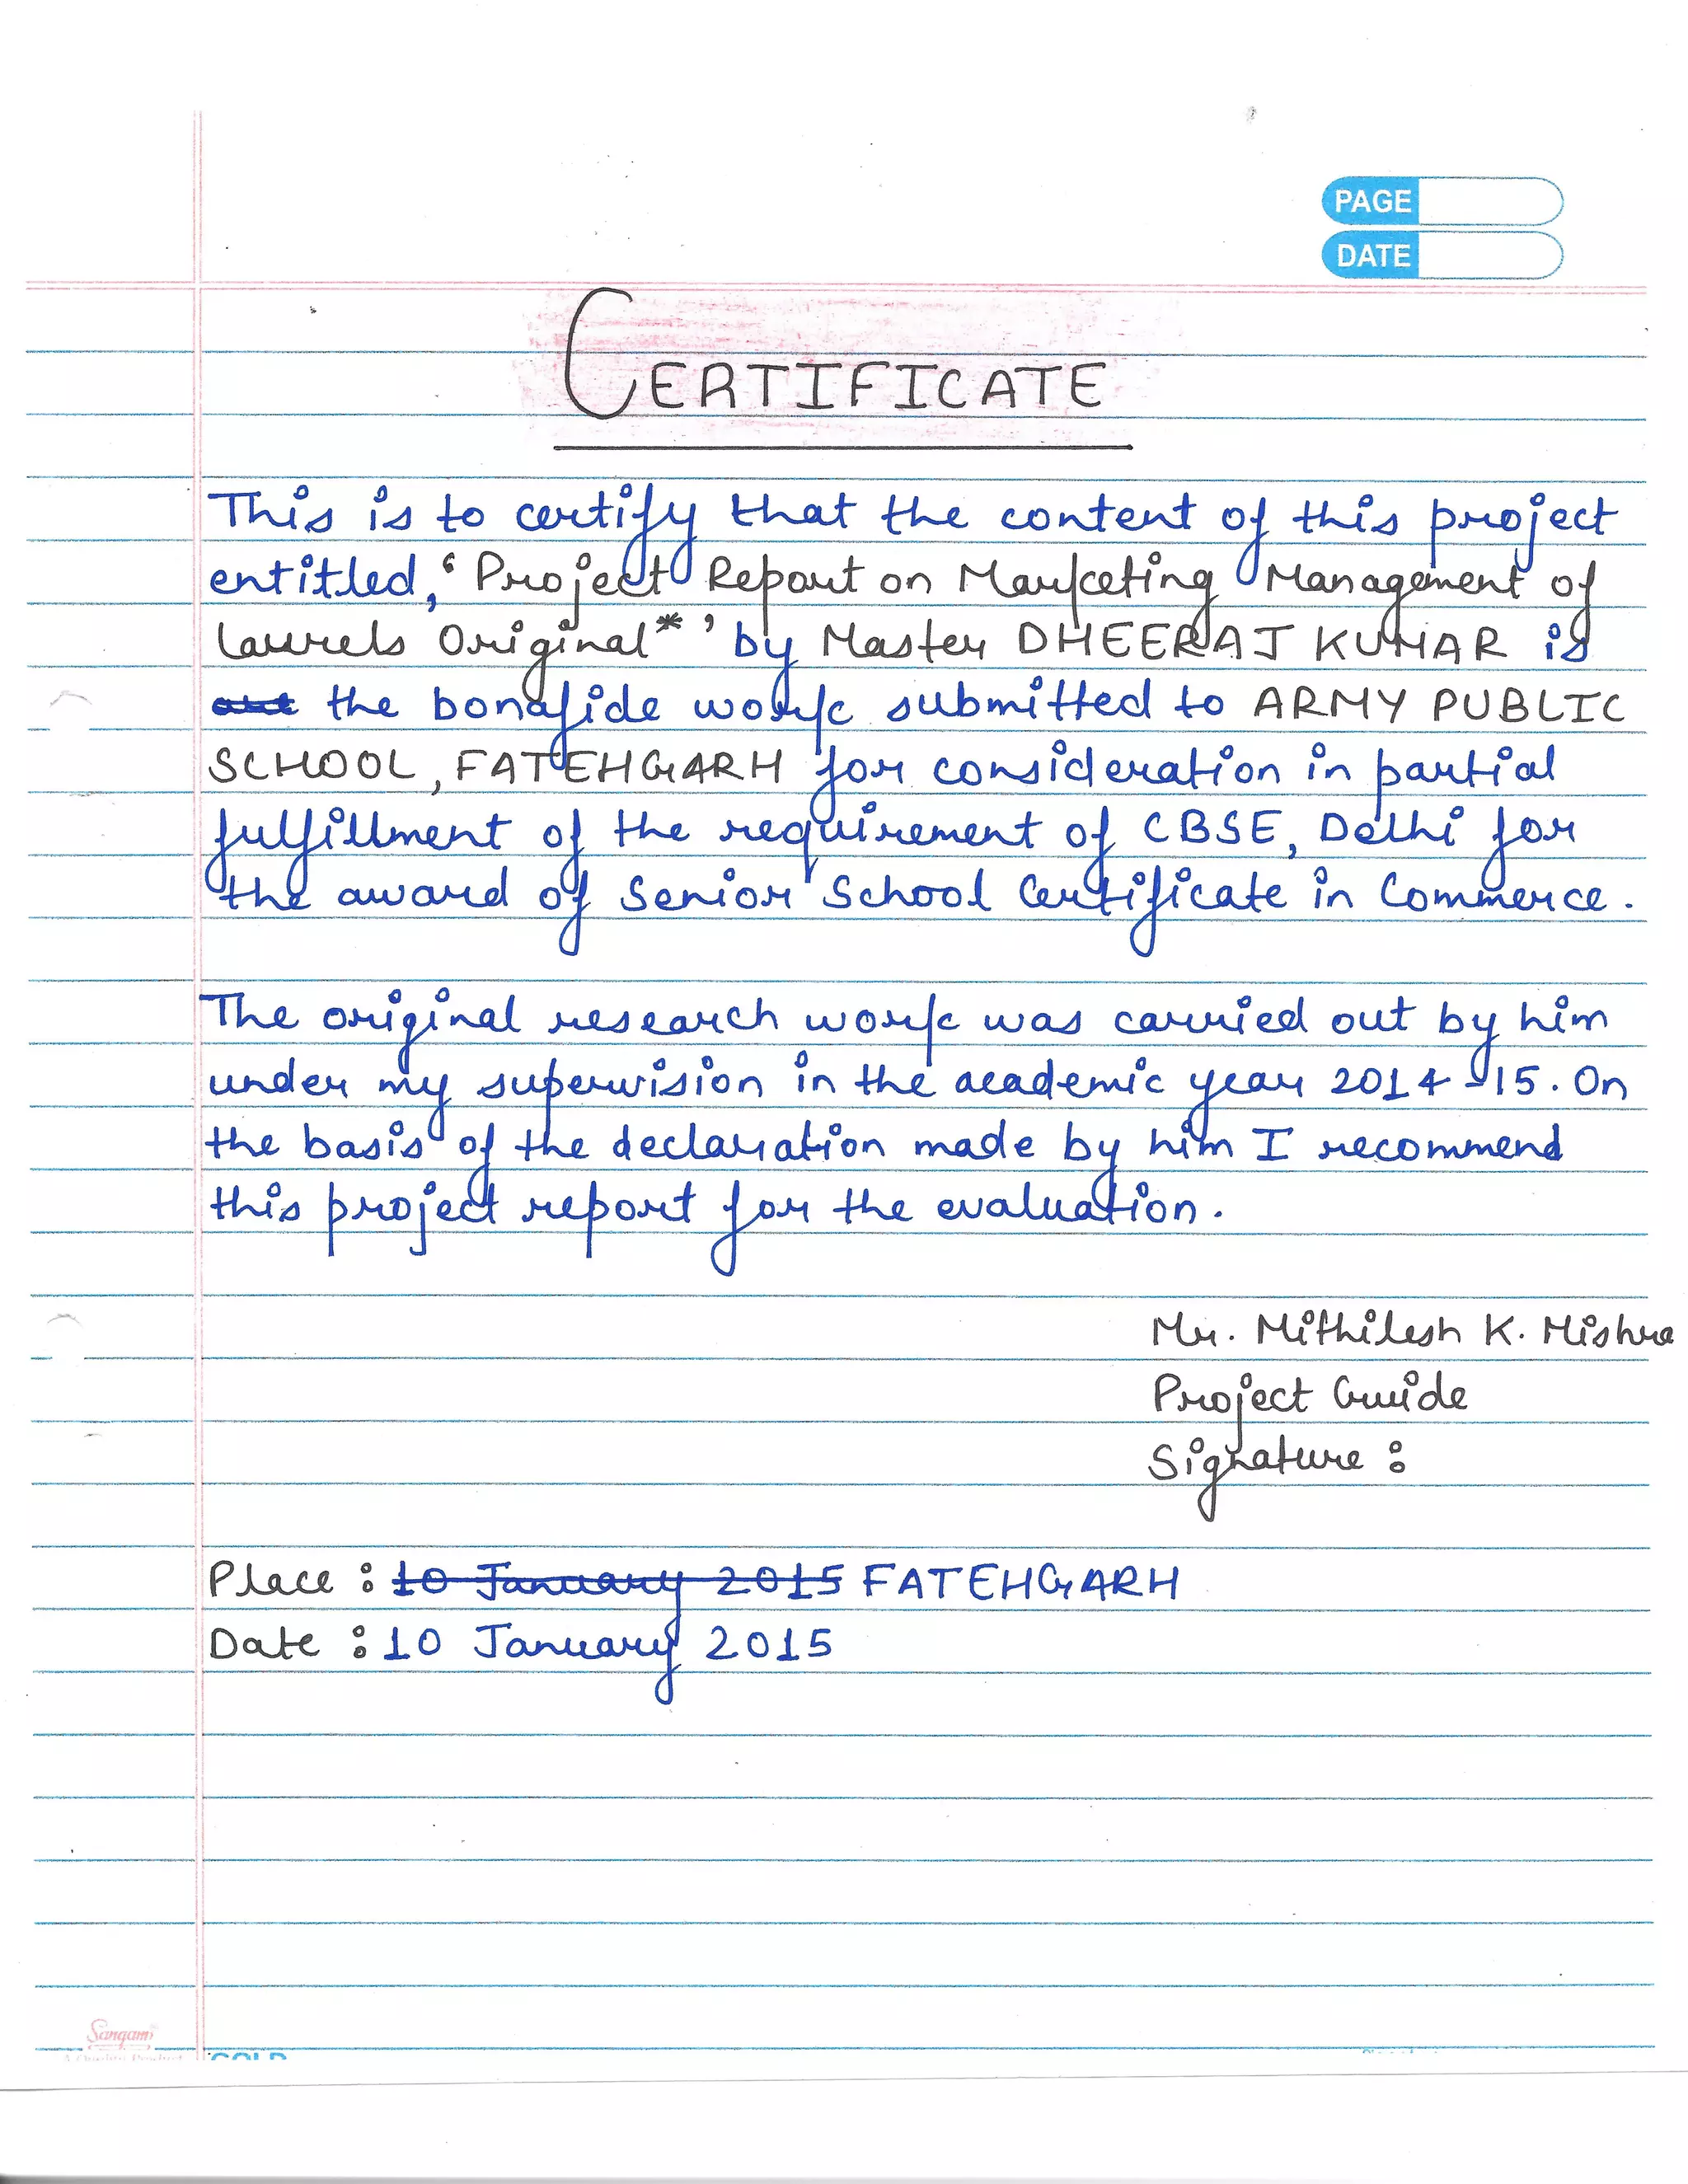 PAGE
DATE
CERTIFICATE
This is to certify that the content of this project
entitled, 'Project Report on Marketing Management of
Laurels Original*' by Master DHEERAJ KUMAR is
the bonafide work submitted to ARMY PUBLIC
SCHOOL, FATEHGARH for consideration in partial
fulfillment of the requirement of CBSE, Delhi for
the award of Senior School Certificate in Commerce.
The original research work was carried out by him
under my supervision in the academic year 2014-15. On
the basis of the declaration made by him I recommend
this project report for the evaluation.
Mr. Mithilesh K. Mishra
Project Guide
Signature :
Place : 10 January 2015 FATEHGARH
Date : 10 January 2015
Sangam
A Quality Product
GOLD